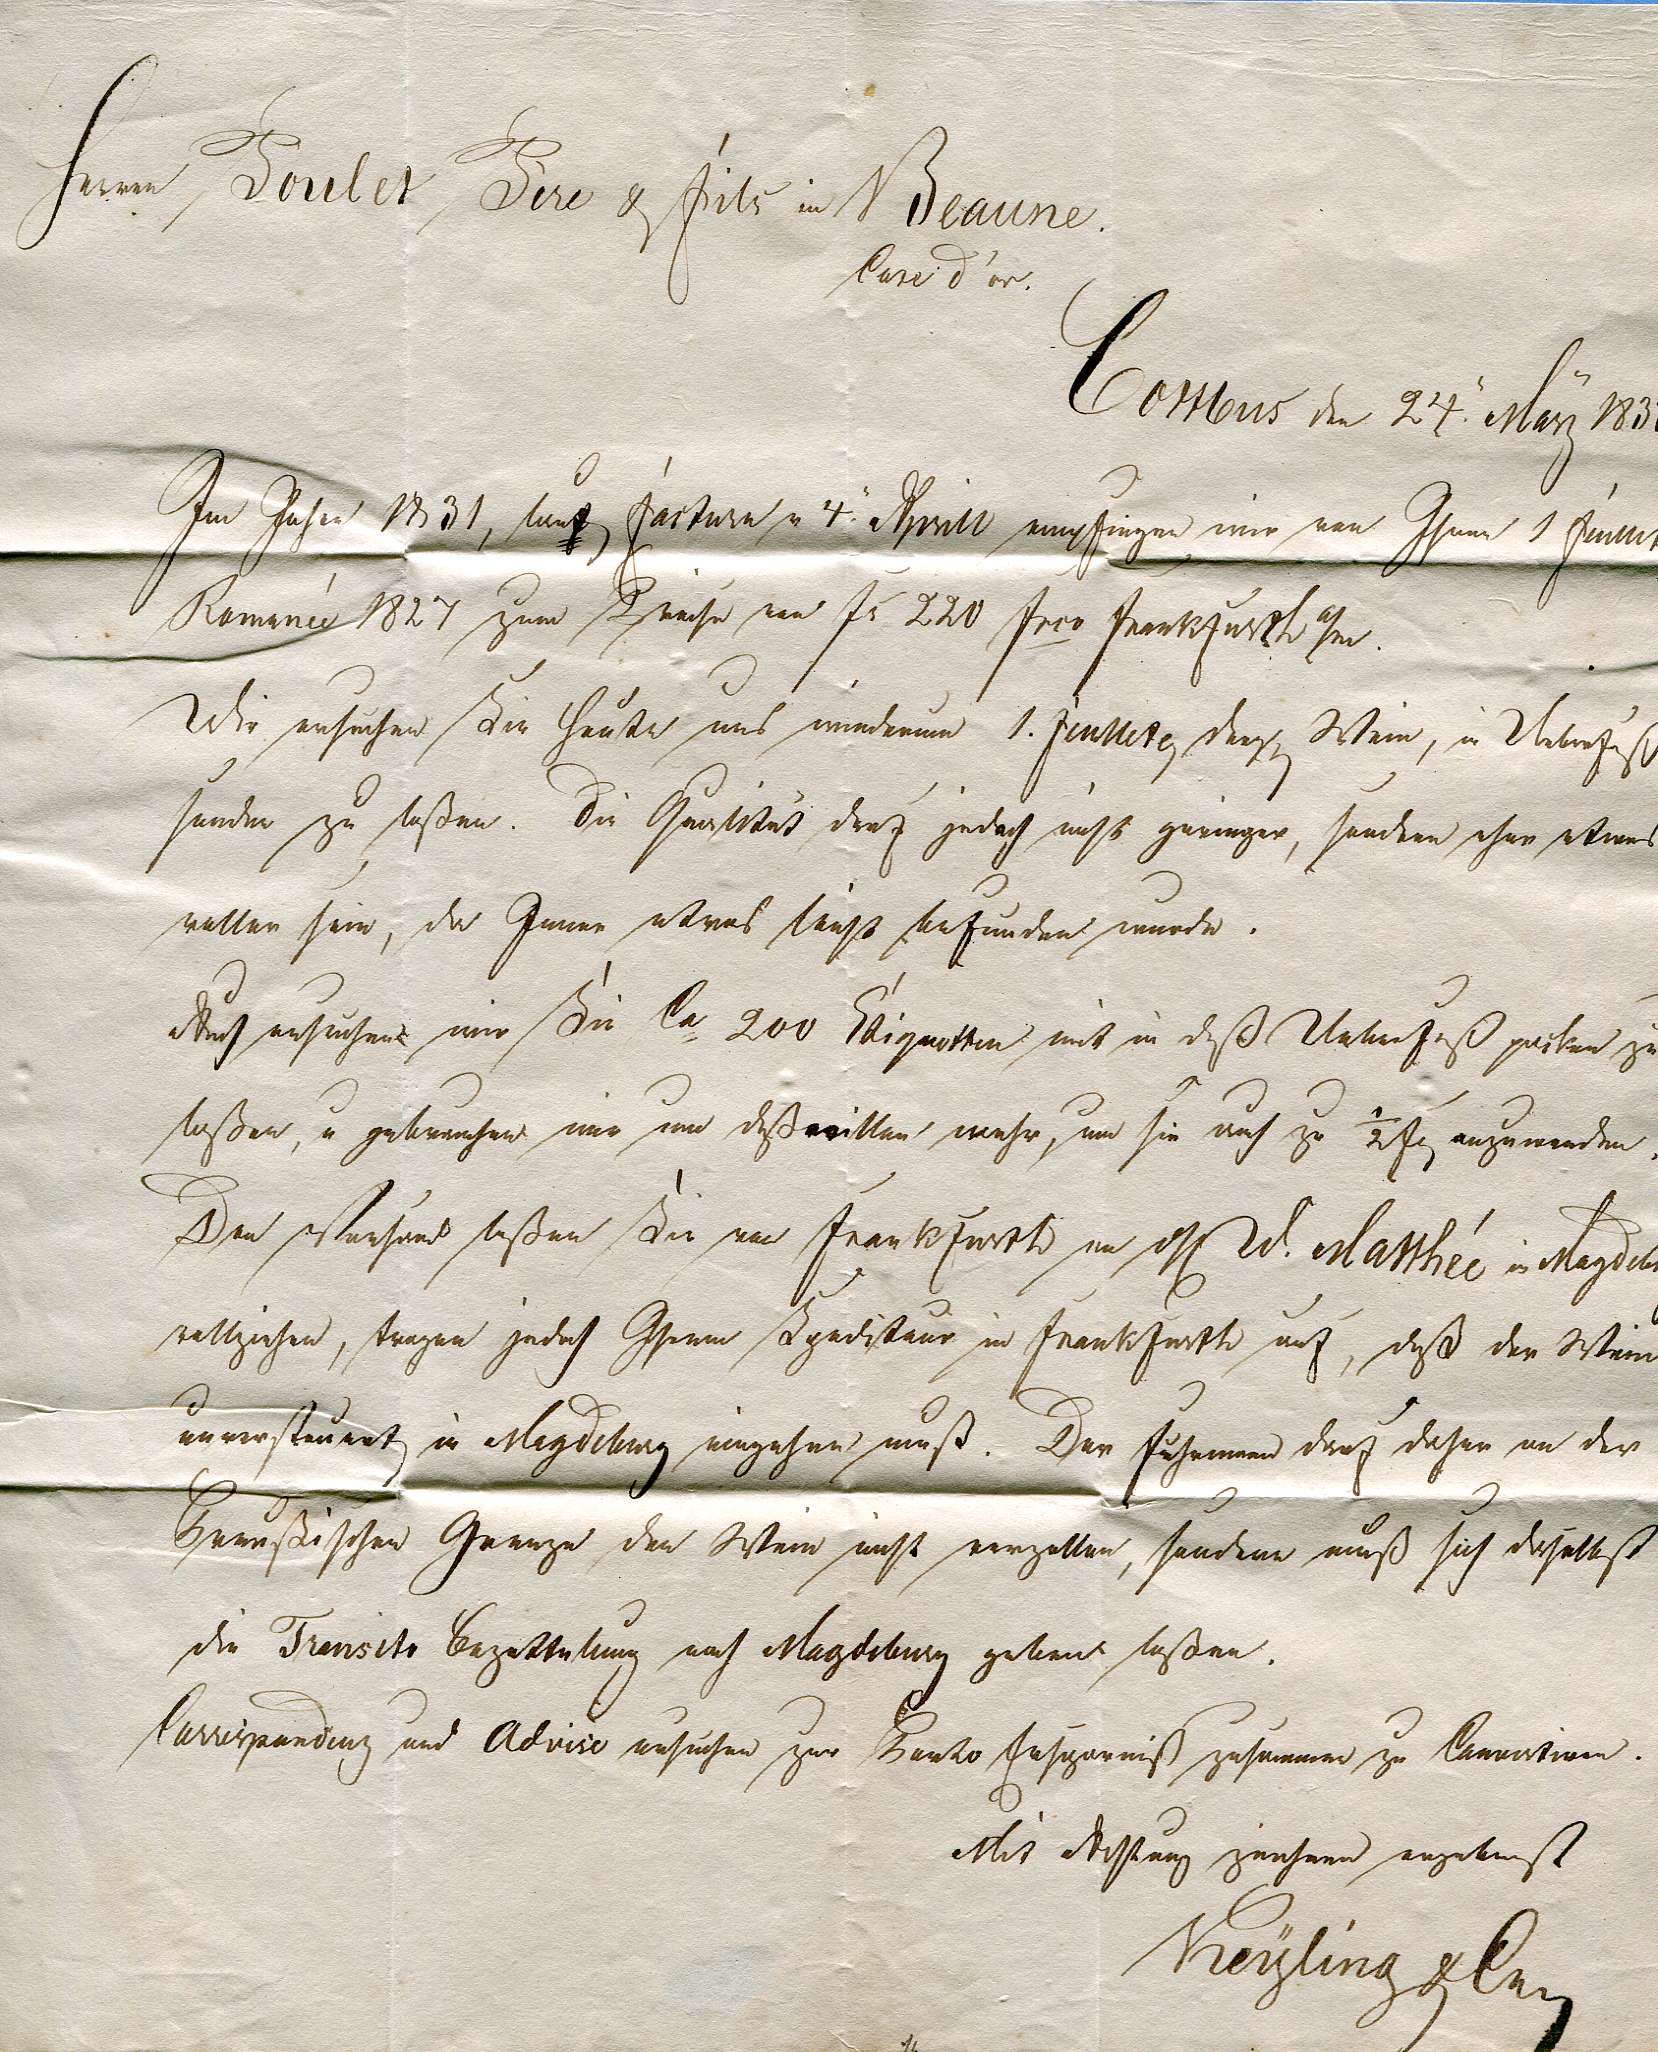 Herren Poulet Pere & fils in Beaune.
Cote d'or.
Cottbus den 24. März 183
Im Jahre 1831, laut factura v 4. Aprill empfingen wir von Ihnen 1 feuillet
Romanée 1827 zum Preise von fs 220 frco Frankfurth a/m.
Wir ersuchen Sie heute uns wiederum 1. feuillette Wein, in Ueberfaß
senden zu laßen. Die Qualität darf jedoch nicht geringer, sondern eher etwas
voller sein, da Jener etwas leicht befunden wurde.
Auch ersuchen wir Sie Ca 200 Etiquetten mit in daß Ueberfaß packen zu
laßen, u gebrauchen wir um deßwillen mehr, um sie auch zu 1/2 Fl anzuwenden.
Den Versand laßen Sie von Frankfurth an W. Matthée in Magdeb
vollziehen, tragen jedoch Ihrem Spediteur in Frankfurth auf, daß der Wein
unversteuert in Magdeburg eingehen muß. Der Fuhrmann darf daher an der
Preußischen Grenze den Wein nicht verzollen, sondern muß sich daselbst
die Transito Bezettelung nach Magdeburg geben laßen.
Correspondenz und Advise ersuchen zur Porto Ersparniß zusammen zu
Mit Achtung zeichnen ergebenst
Keyling & Co